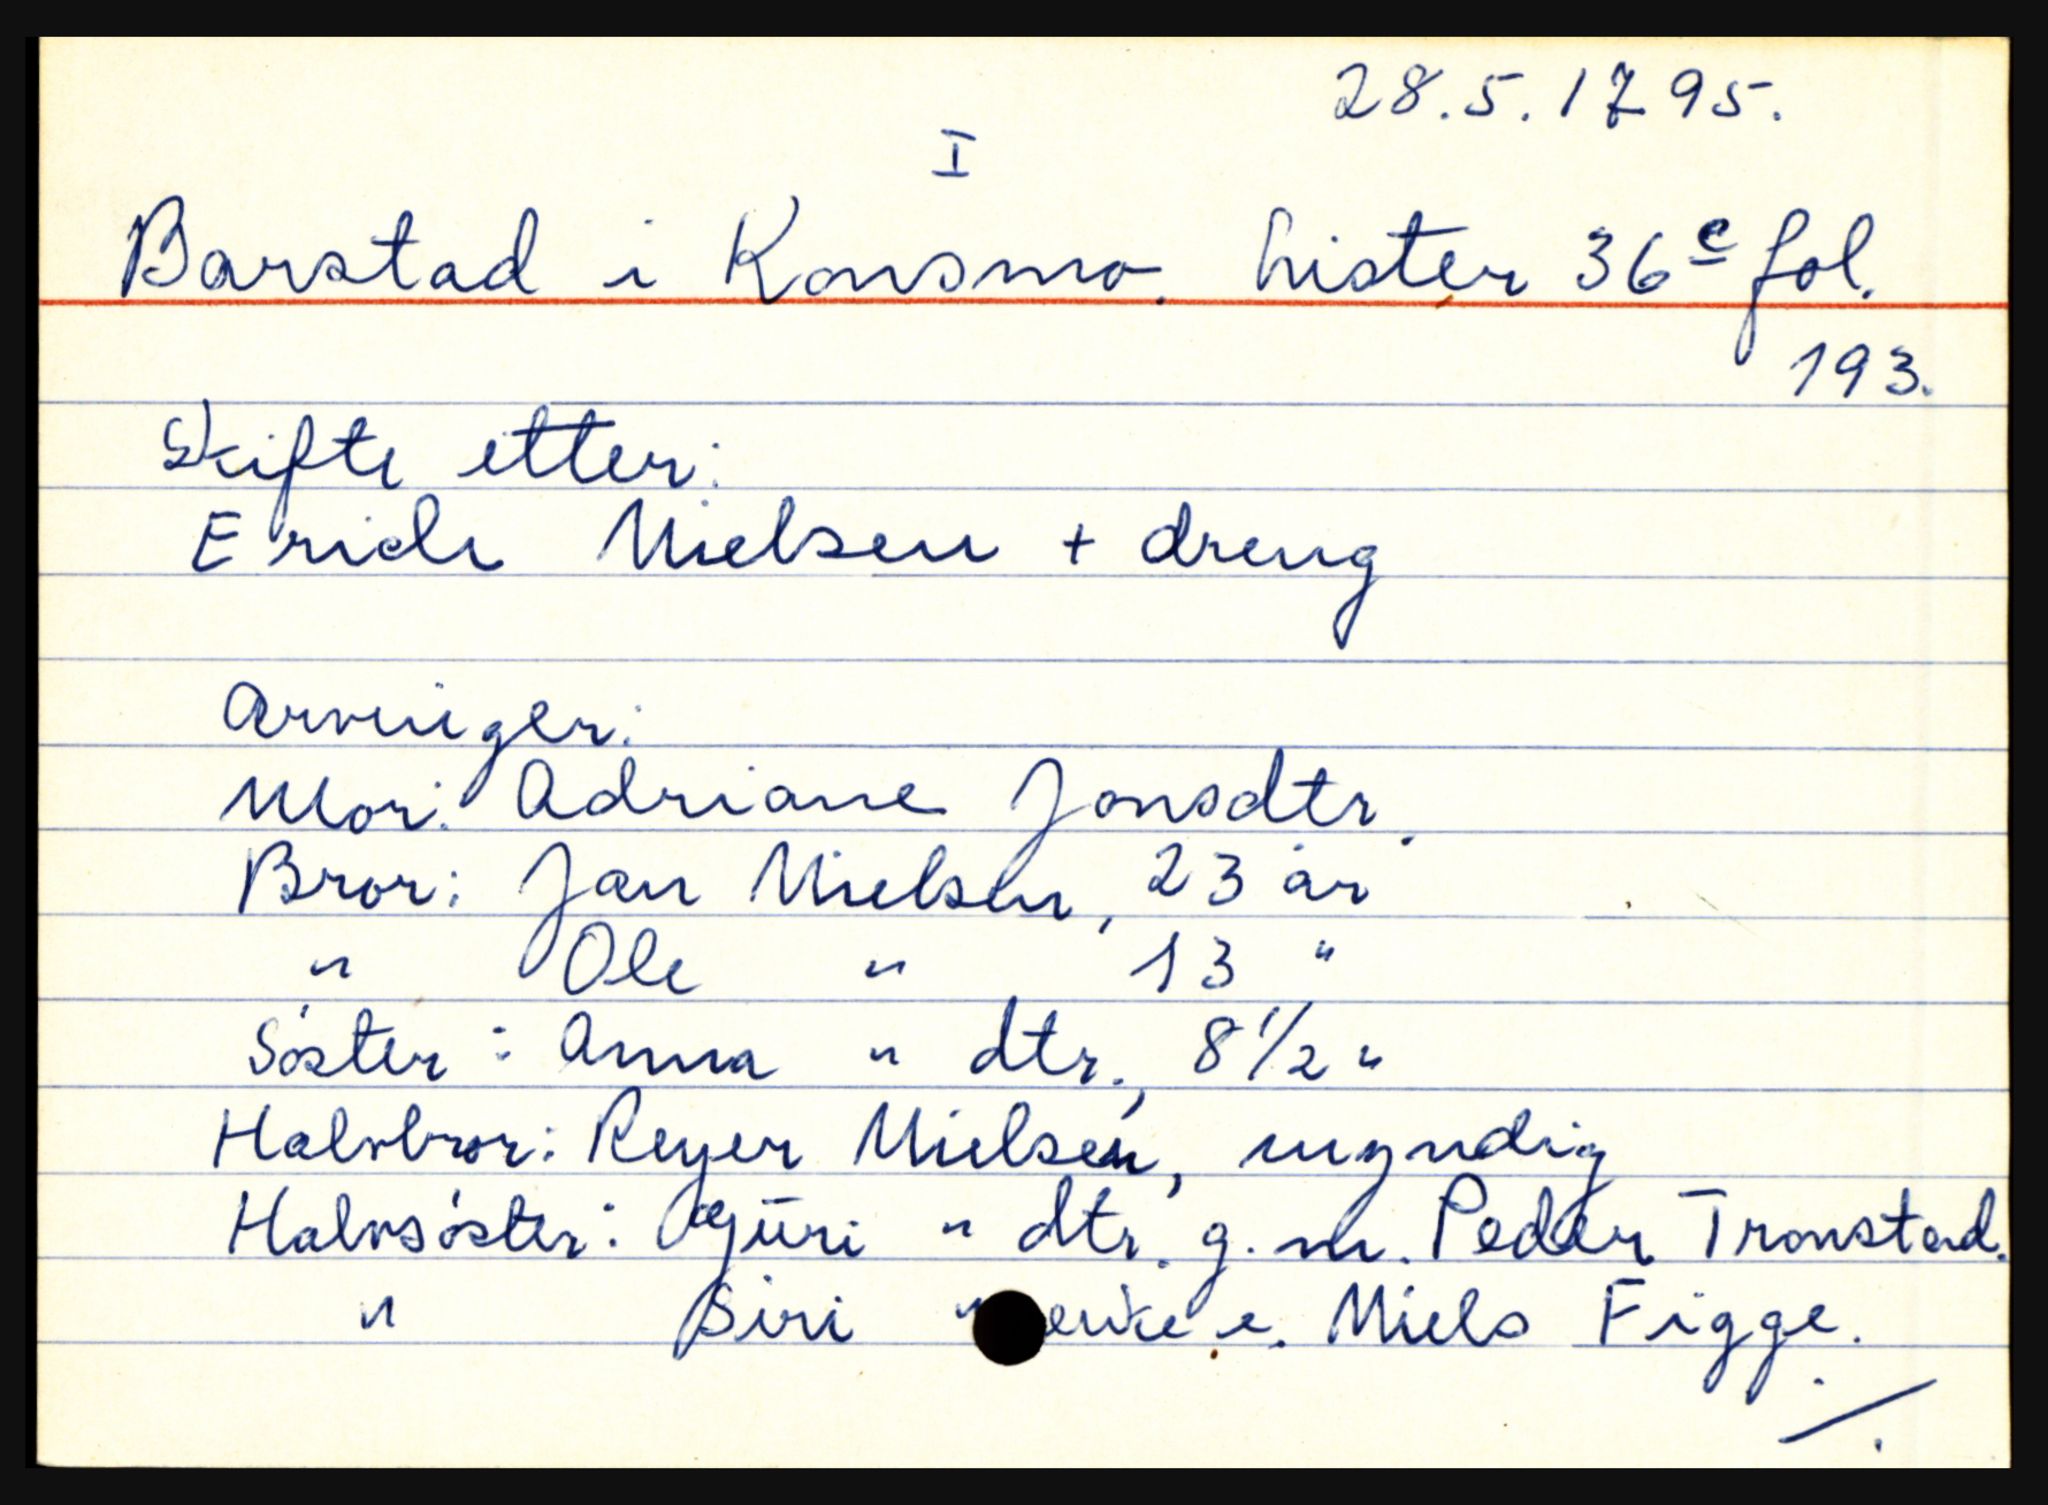 28.5.1795.
I
Barstad i Konsmo. Lister 36c fol.
193.
Skifte etter:
Erich Nielsen + dreng
Arvinger:
Mor: Adriane Jonsdtr.
Bror: Jan Nielsen, 23 år
" Ole " 13 "
Søster: Anna " dtr., 8 1/2 "
Halvbror: Reyer Nielsen, myndig
Halvsøster: Gjüri " dtr. g.m. Peder Tronstad.
" Siri " enke e. Niels Figge.